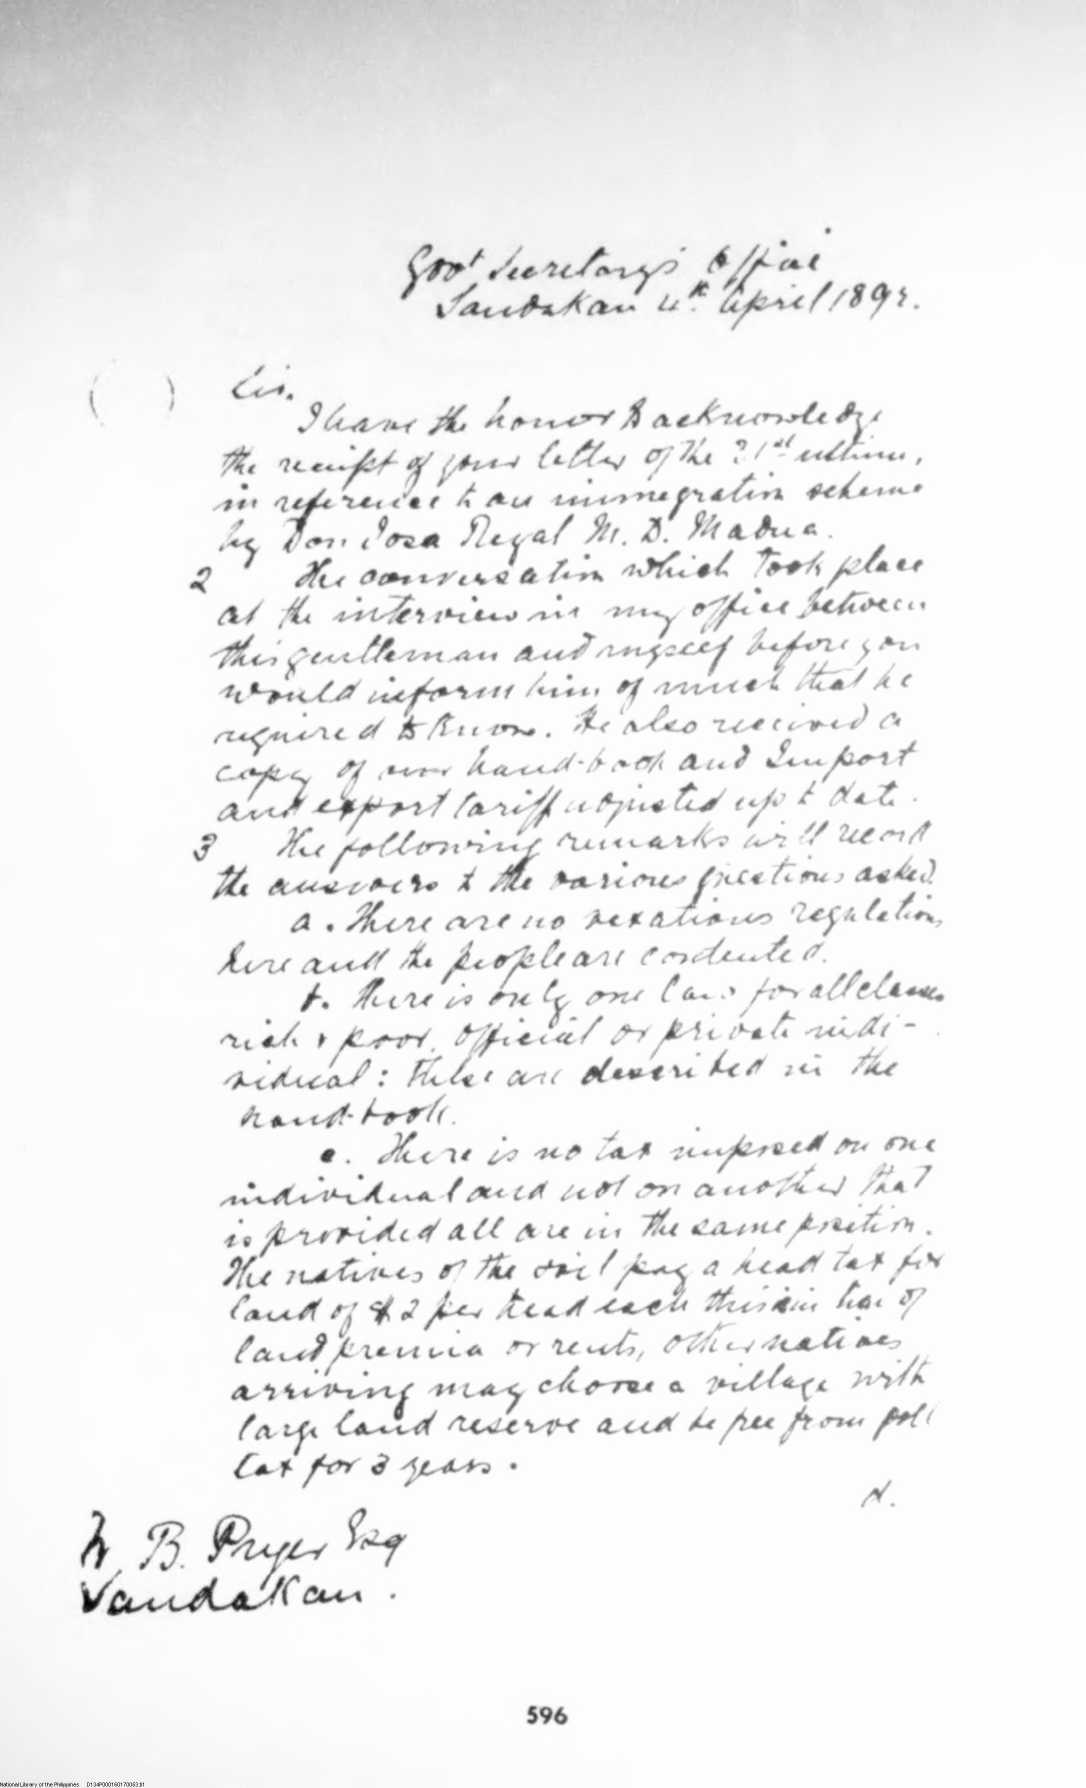 Govt Secretary's Office
Sandakan 4th April 1892.
Sir.
I have the honor to acknowledge
the receipt of your letter of the 31st ultimo,
in reference to an immegration scheme
by Don Josa Regal M. D. Madua.
2 The conversation which took place
at the interview in my office between
this gentleman and myself before you
would inform him of much that he
required to know. He also received a
copy of our hand-book and Import
and export tariff adjusted up to date.
3 The following remarks will record
the answers to the various questions asked.
a. There are no vexatious regulations
here and the people are contented.
b. There is only one law for all classes
rich & poor, official or private indi-
vidual: these are described in the
hand-book.
c. There is no tax imposed on one
individual and not on another that
is provided all are in the same position.
The natives of the soil pay a head tax for
land of $2 per head each this in lieu of
land premia or rents, other natives
arriving may choose a village with
large land reserve and be free from poll
tax for 3 years.
d.
W. B. Pryer Esq
Sandakan.
596
National Library of the Philippines